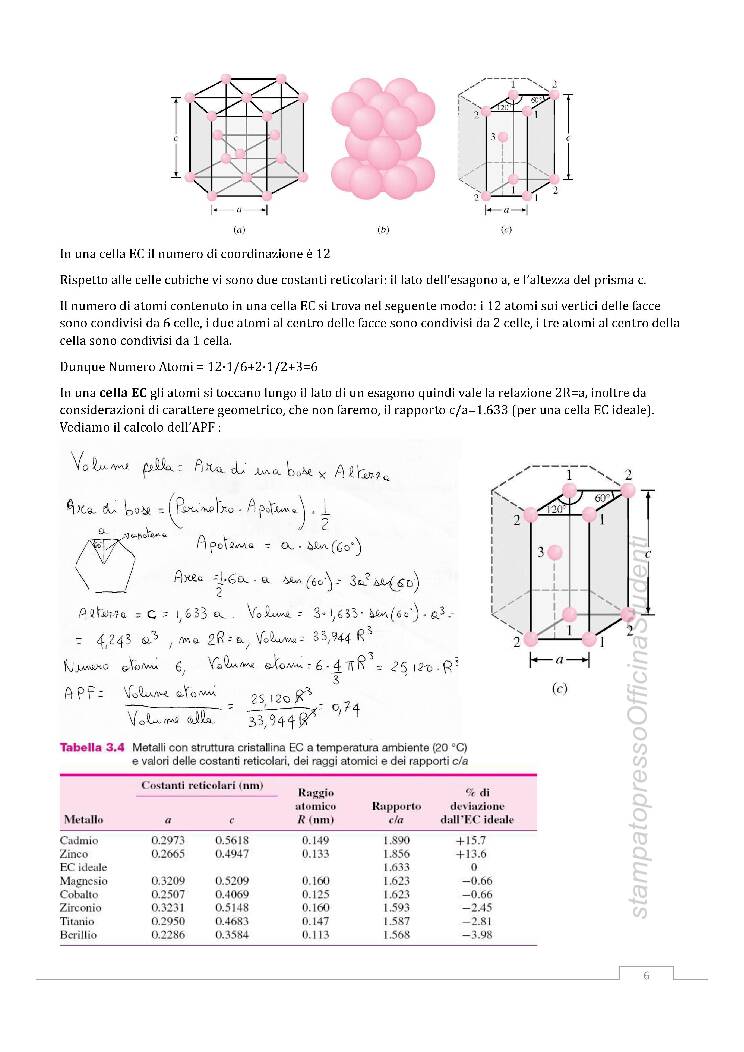 c
a
(a)
(b)
1
2
120°
60°
2
1
3
c
1
2
2
1
a
(c)
In una cella EC il numero di coordinazione è 12
Rispetto alle celle cubiche vi sono due costanti reticolari: il lato dell'esagono a, e l'altezza del prisma c.
Il numero di atomi contenuto in una cella EC si trova nel seguente modo: i 12 atomi sui vertici delle facce
sono condivisi da 6 celle, i due atomi al centro delle facce sono condivisi da 2 celle, i tre atomi al centro della
cella sono condivisi da 1 cella.
Dunque Numero Atomi = 12·1/6+2·1/2+3=6
In una cella EC gli atomi si toccano lungo il lato di un esagono quindi vale la relazione 2R=a, inoltre da
considerazioni di carattere geometrico, che non faremo, il rapporto c/a=1.633 (per una cella EC ideale).
Vediamo il calcolo dell'APF :
Volume pella = Area di una base x Altezza
Area di base = (Perimetro · Apotema) · 1/2
a
60°
apotema
Apotema = a · sen(60°)
Area = 1/2 · 6a · a sen(60°) = 3a² sen(60)
Altezza = c = 1,633 a . Volume = 3·1,633·sen(60°)·a³ =
= 4,243 a³ , ma 2R=a, Volume = 33,944 R³
Numero atomi 6, Volume atomi = 6·4/3 πR³ = 25,120·R³
APF = Volume atomi / Volume cella = 25,120 R³ / 33,944 R³ = 0,74
1
2
120°
60°
2
1
3
c
1
2
2
1
a
(c)
Tabella 3.4 Metalli con struttura cristallina EC a temperatura ambiente (20 °C)
e valori delle costanti reticolari, dei raggi atomici e dei rapporti c/a
Costanti reticolari (nm) Raggio % di
atomico Rapporto deviazione
Metallo a c R (nm) c/a dall'EC ideale
Cadmio 0.2973 0.5618 0.149 1.890 +15.7
Zinco 0.2665 0.4947 0.133 1.856 +13.6
EC ideale 1.633 0
Magnesio 0.3209 0.5209 0.160 1.623 −0.66
Cobalto 0.2507 0.4069 0.125 1.623 −0.66
Zirconio 0.3231 0.5148 0.160 1.593 −2.45
Titanio 0.2950 0.4683 0.147 1.587 −2.81
Berillio 0.2286 0.3584 0.113 1.568 −3.98
stampatopressoOfficinaStudenti
6